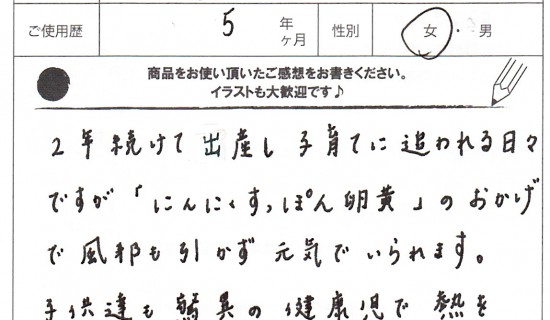 ご使用歴 5 年 ヶ月 性別 女・男
商品をお使い頂いたご感想をお書きください。
イラストも大歓迎です♪
2年続けて出産し子育てに追われる日々
ですが「にんにくすっぽん卵黄」のおかげ
で風邪も引かず元気でいられます。
子供達も驚異の健康児で熱を